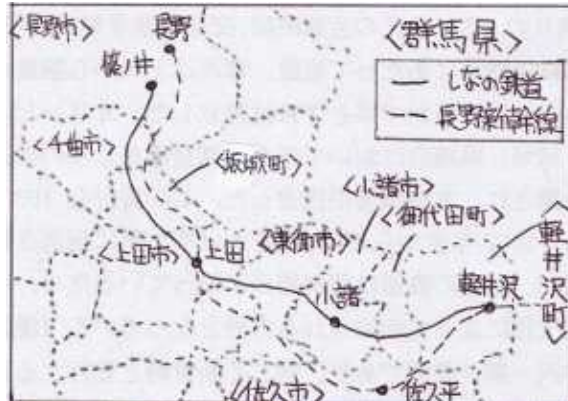 <長野市>
長野
篠ノ井
<群馬県>
しなの鉄道
長野新幹線
<千曲市>
<坂城町>
<小諸市>
<御代田町>
<東御市>
<上田市>
上田
小諸
軽井沢
軽井沢町
<佐久市>
佐久平